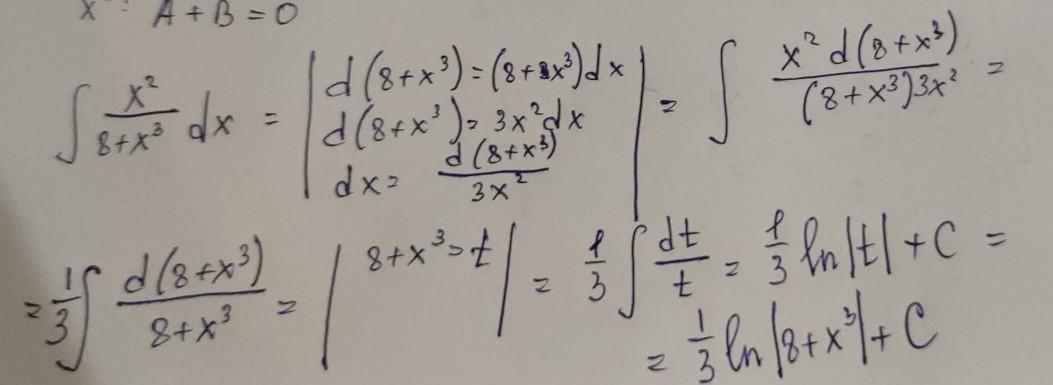 x : A + B = 0
∫ x²/(8+x³) dx = | d(8+x³) = (8+x³)dx
d(8+x³) = 3x²dx
dx = d(8+x³)/3x² | = ∫ x² d(8+x³)/(8+x³)3x² =
= 1/3 ∫ d(8+x³)/(8+x³) = | 8+x³ = t | = 1/3 ∫ dt/t = 1/3 ln|t| + C =
= 1/3 ln|8+x³| + C